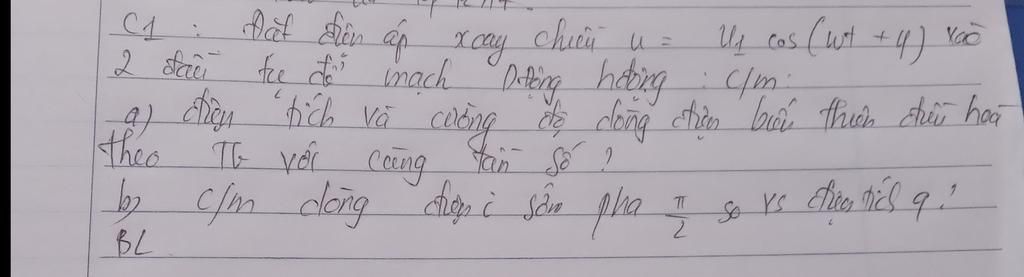 C1 : Đặt điện áp xoay chiều u = U1 cos(wt + φ) vào
2 đầu tụ để mạch hđộng : c/m :
a) điện tích và cường độ dòng điện biến thiên điều hoà
theo TG với cùng tần số ?
b) c/m dòng điện i sớm pha π/2 so vs điện tích q ?
BL